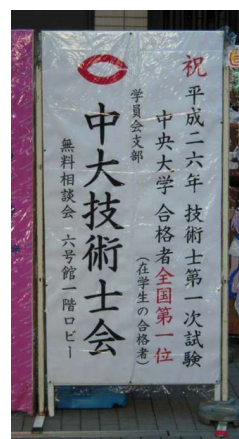 祝 平成二六年 技術士第一次試験
中央大学 合格者全国第一位
(在学生の合格者)
学員会支部
中大技術士会
無料相談会 六号館一階ロビー